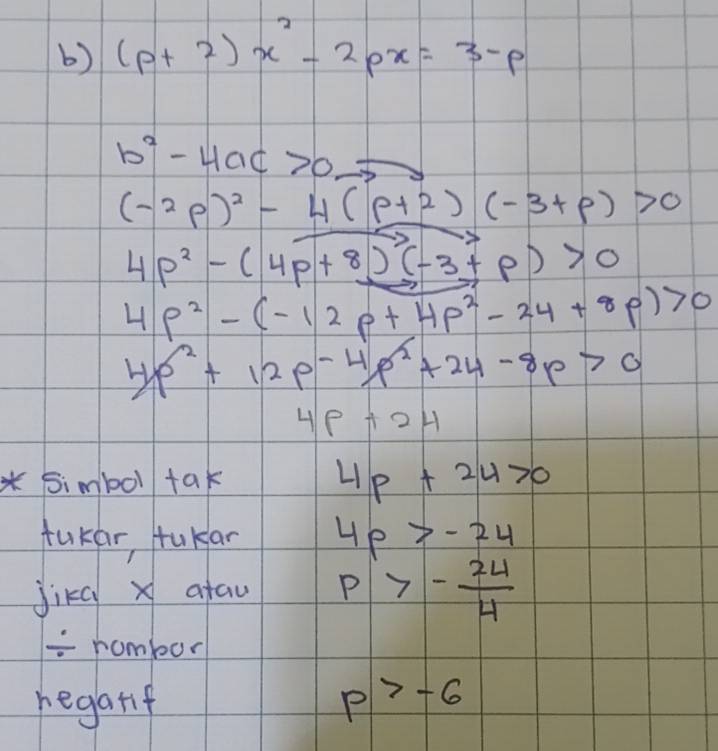 b) (p+2)x² - 2px = 3-p
b² - 4ac > 0
(-2p)² - 4(p+2)(-3+p) > 0
4p² - (4p+8)(-3+p) > 0
4p² - (-12p + 4p² - 24 + 8p) > 0
4p² + 12p - 4p² + 24 - 8p > 0
4p + 24
* Simbol tak
tukar, tukar
jika x atau
÷ nombor
negatif
4p + 24 > 0
4p > -24
p > - 24/4
p > -6